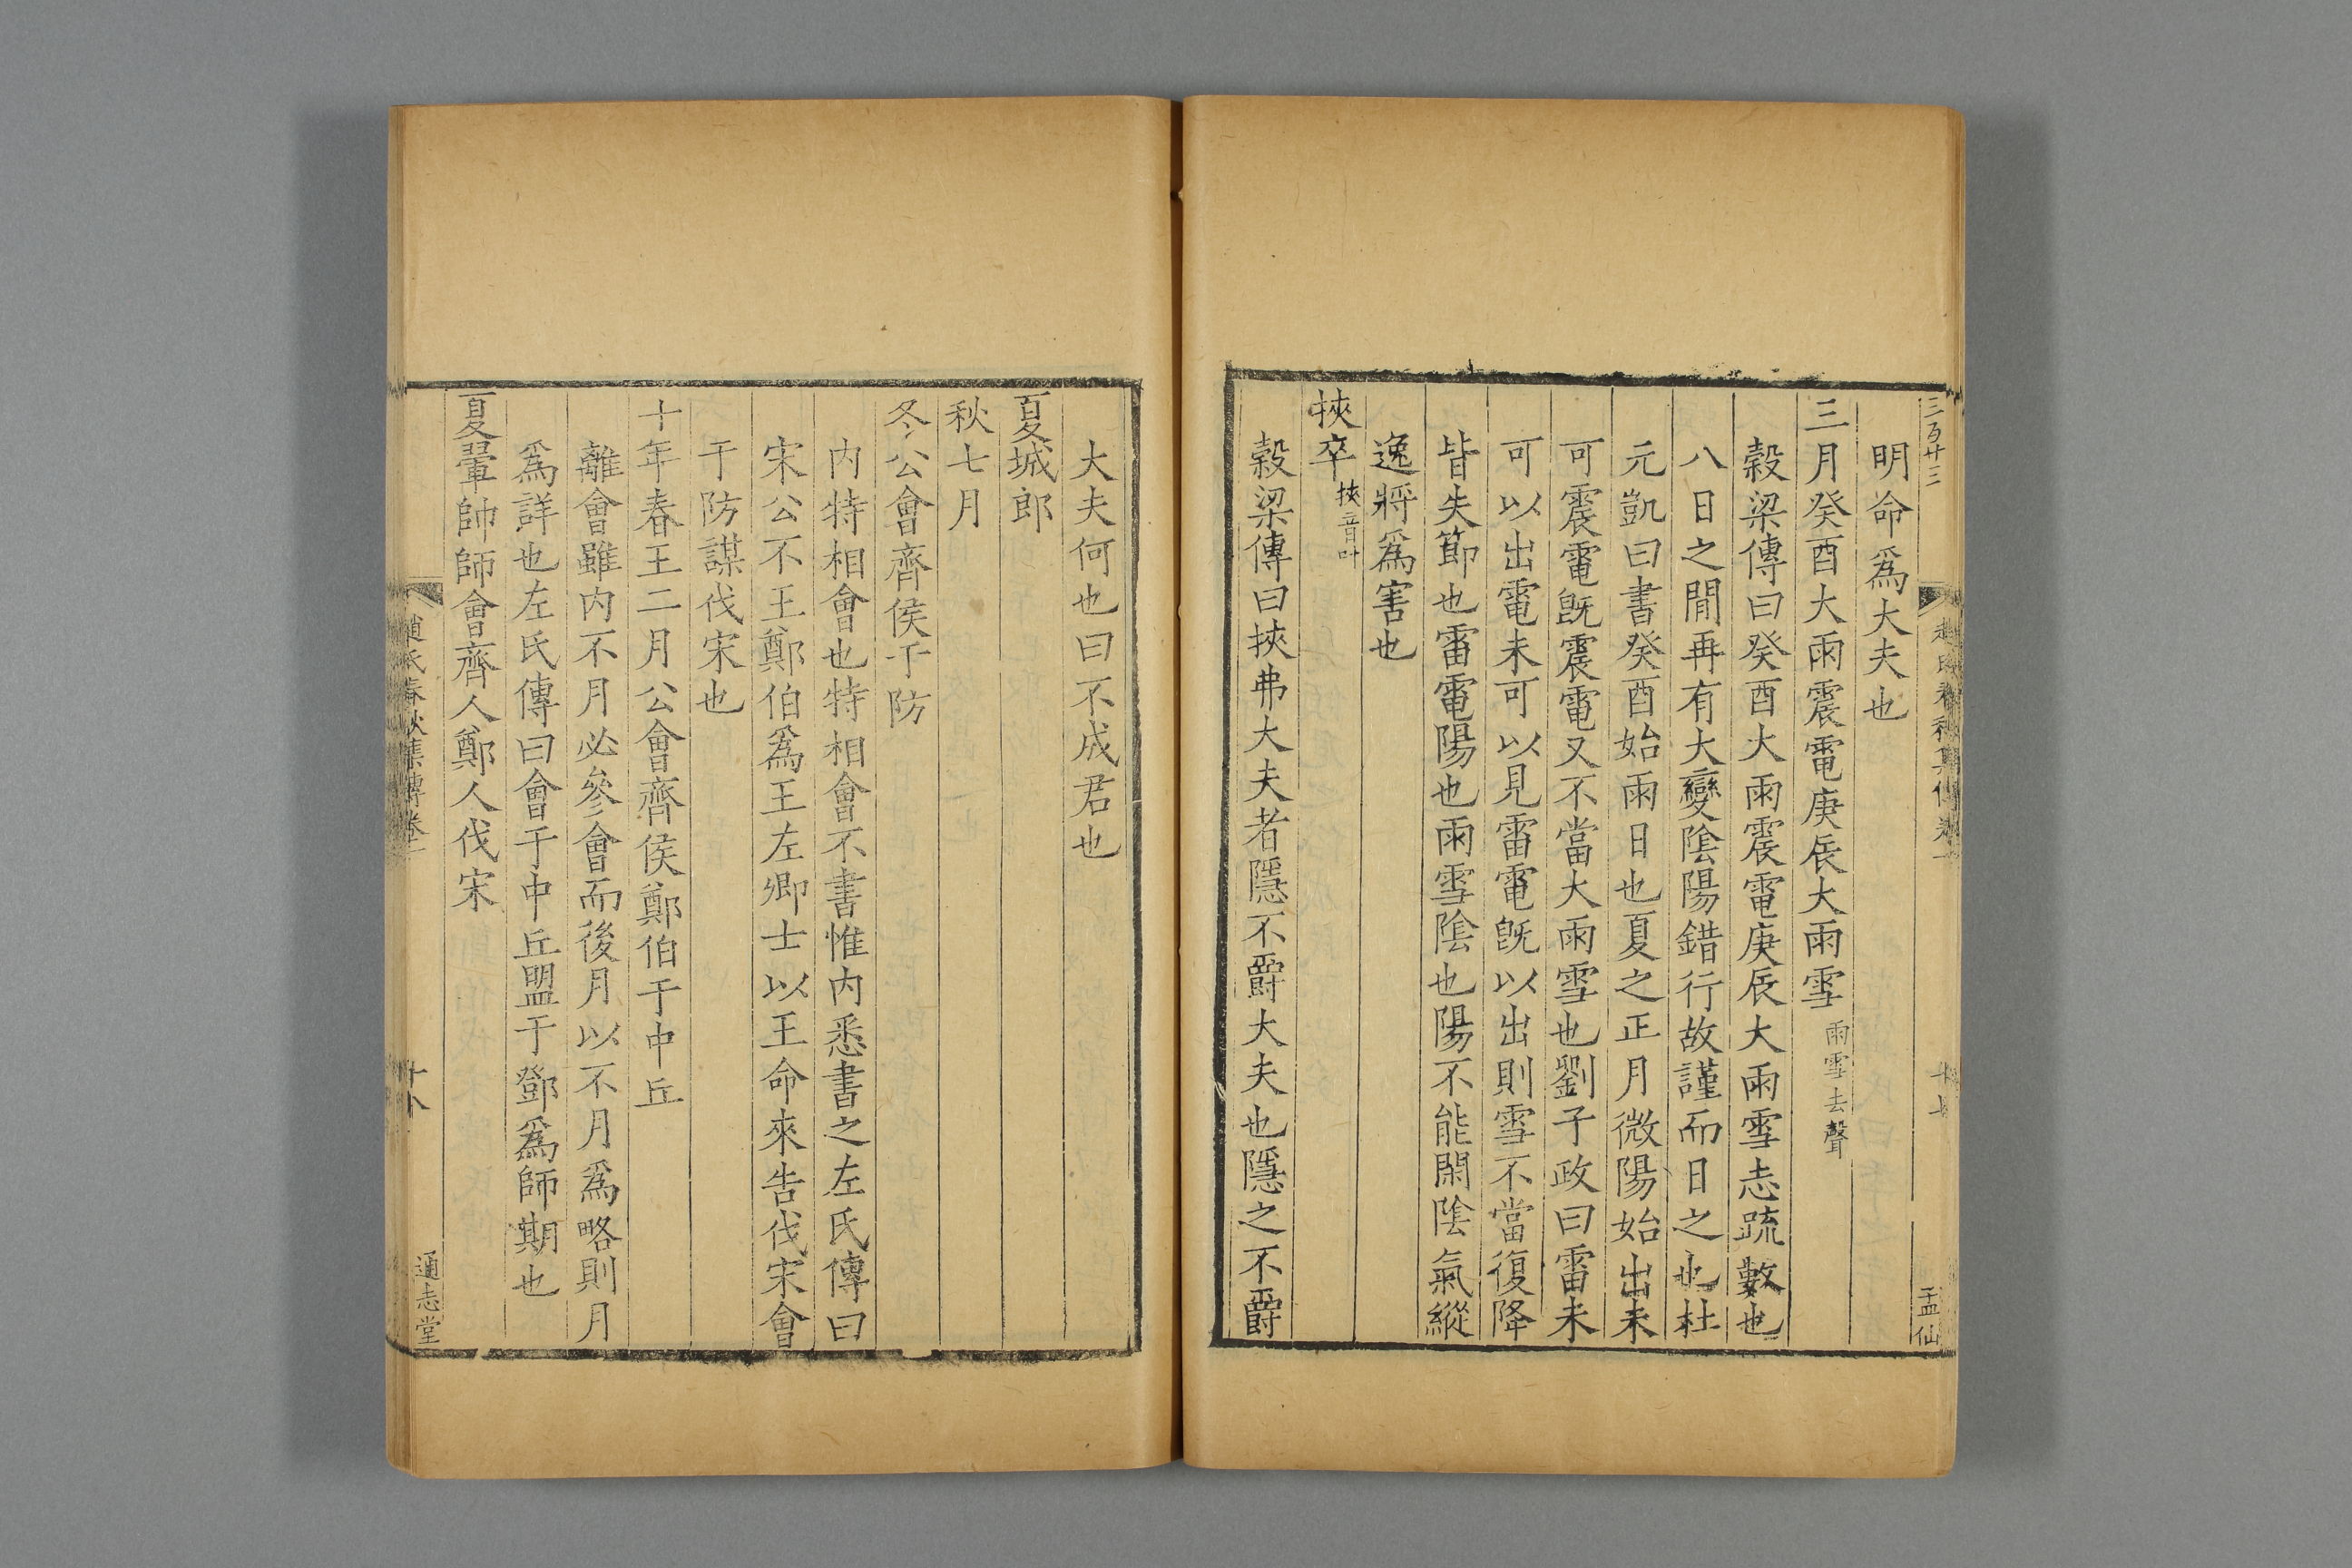 三百廿三
趙氏春秋集傳卷一
十七
孟仙
明命爲大夫也
三月癸酉大雨震電庚辰大雨雪雨雪去聲
穀梁傳曰癸酉大雨震電庚辰大雨雪志疏數也
八日之閒再有大變陰陽錯行故謹而日之也杜
元凱曰書癸酉始雨日也夏之正月微陽始出未
可震電旣震電又不當大雨雪也劉子政曰雷未
可以出電未可以見雷電旣以出則雪不當復降
皆失節也雷電陽也雨雪陰也陽不能閑陰氣縱
逸將爲害也
挾卒挾音叶
穀梁傳曰挾弗大夫者隱不爵大夫也隱之不爵
大夫何也曰不成君也
夏城郎
秋七月
冬公會齊侯于防
内特相會也特相會不書惟内悉書之左氏傳曰
宋公不王鄭伯爲王左卿士以王命來告伐宋會
于防謀伐宋也
十年春王二月公會齊侯鄭伯于中丘
離會雖内不月必參會而後月以不月爲略則月
爲詳也左氏傳曰會于中丘盟于鄧爲師期也
夏翬帥師會齊人鄭人伐宋
趙氏春秋集傳卷一
十八
通志堂